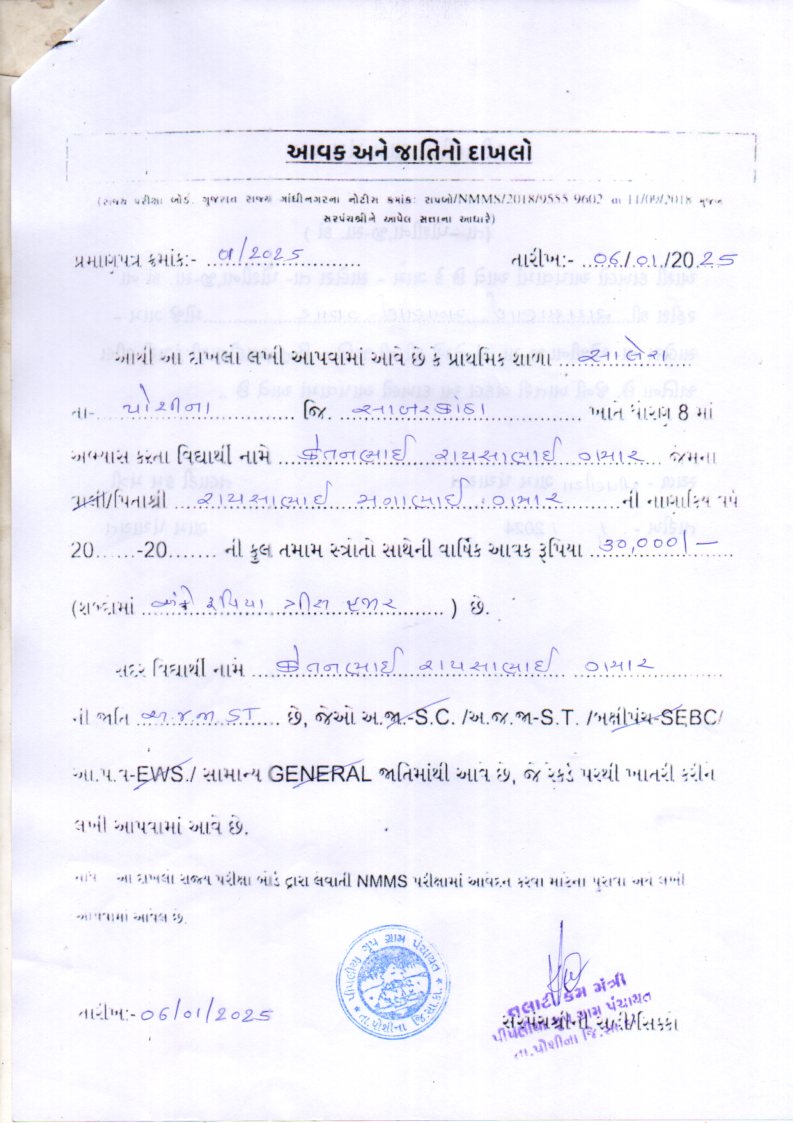 આવક અને જાતિનો દાખલો
(રાજ્ય પરીક્ષા બોર્ડ, ગુજરાત રાજ્ય ગાંધીનગરના નોટીસ ક્રમાંક: રાપબો/NMMS/2018/9555-9602 તા 11/09/2018 મુજબ
સરપંચશ્રીને આપેલ સત્તાના આધારે)
પ્રમાણપત્ર ક્રમાંક:- 01/2025 તારીખ:- 06/01/2025
આથી આ દાખલો લખી આપવામાં આવે છે કે પ્રાથમિક શાળા સાલેરા
તા- પોશીના જિ. સાબરકાંઠા ખાતે ધોરણ 8 માં
અભ્યાસ કરતા વિદ્યાર્થી નામે કેતનભાઈ રાયસાભાઈ ગમાર જેમના
વાલી/પિતાશ્રી રાયસાભાઈ મનાભાઈ ગમાર ની નાણાકિય વર્ષ
20.......-20........ ની કુલ તમામ સ્ત્રોતો સાથેની વાર્ષિક આવક રૂપિયા 30,000/-
(શબ્દોમાં અંકે રૂપિયા ત્રીસ હજાર ) છે.
સદર વિદ્યાર્થી નામે કેતનભાઈ રાયસાભાઈ ગમાર
ની જાતિ અ.જ.જા ST છે, જેઓ અ.જા.-S.C. /અ.જ.જા-S.T. /બક્ષીપંચ-SEBC/
આ.પ.વ-EWS./ સામાન્ય GENERAL જાતિમાંથી આવે છે, જે રેકર્ડ પરથી ખાતરી કરીને
લખી આપવામાં આવે છે.
નોંધ આ દાખલો રાજ્ય પરીક્ષા બોર્ડ દ્વારા લેવાતી NMMS પરીક્ષામાં આવેદન કરવા માટેના પુરાવા અર્થે લખી
આપવામાં આવેલ છે.
પીપળીયા ગ્રુપ ગ્રામ પંચાયત
તા.પોશીના જિ.સા.કાં.
તારીખ:- 06/01/2025
તલાટી કમ મંત્રી
ગ્રુપ ગ્રામ પંચાયત
સરપંચશ્રીની સહી/સિક્કો
તા.પોશીના